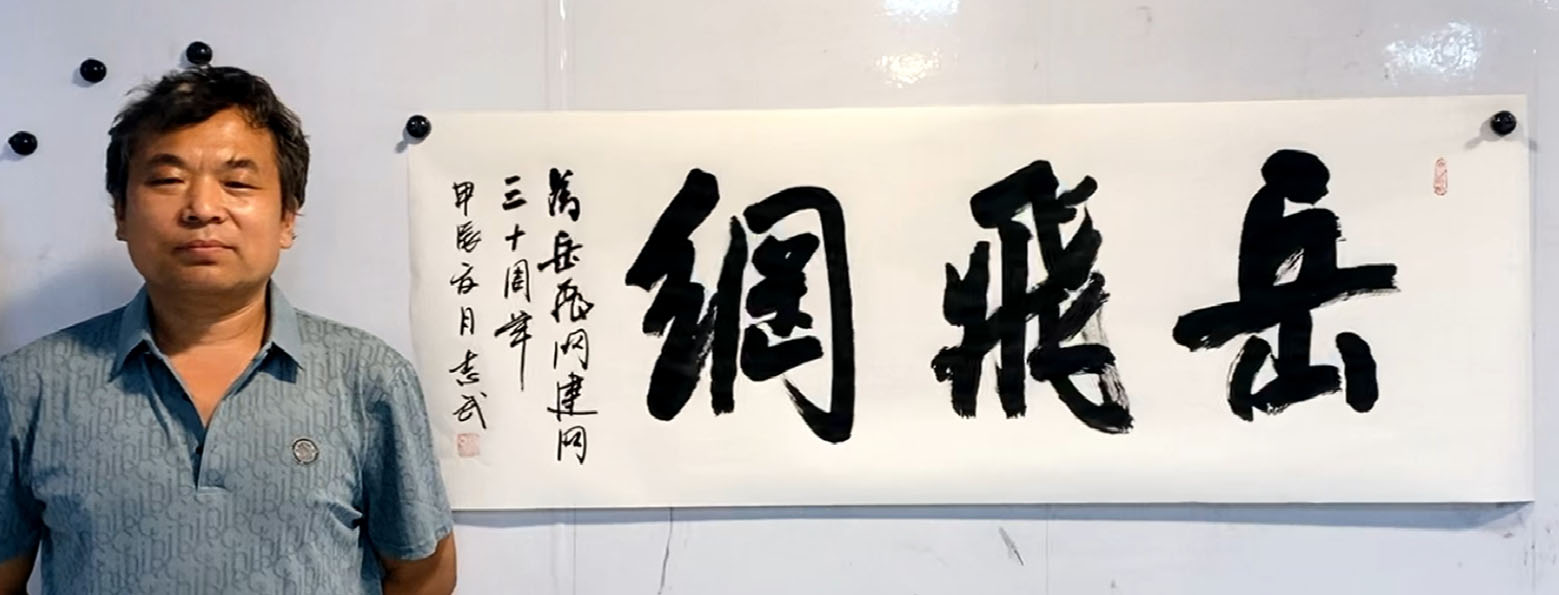 岳飛網
為岳飛网建网
三十周年
甲辰夏月志武